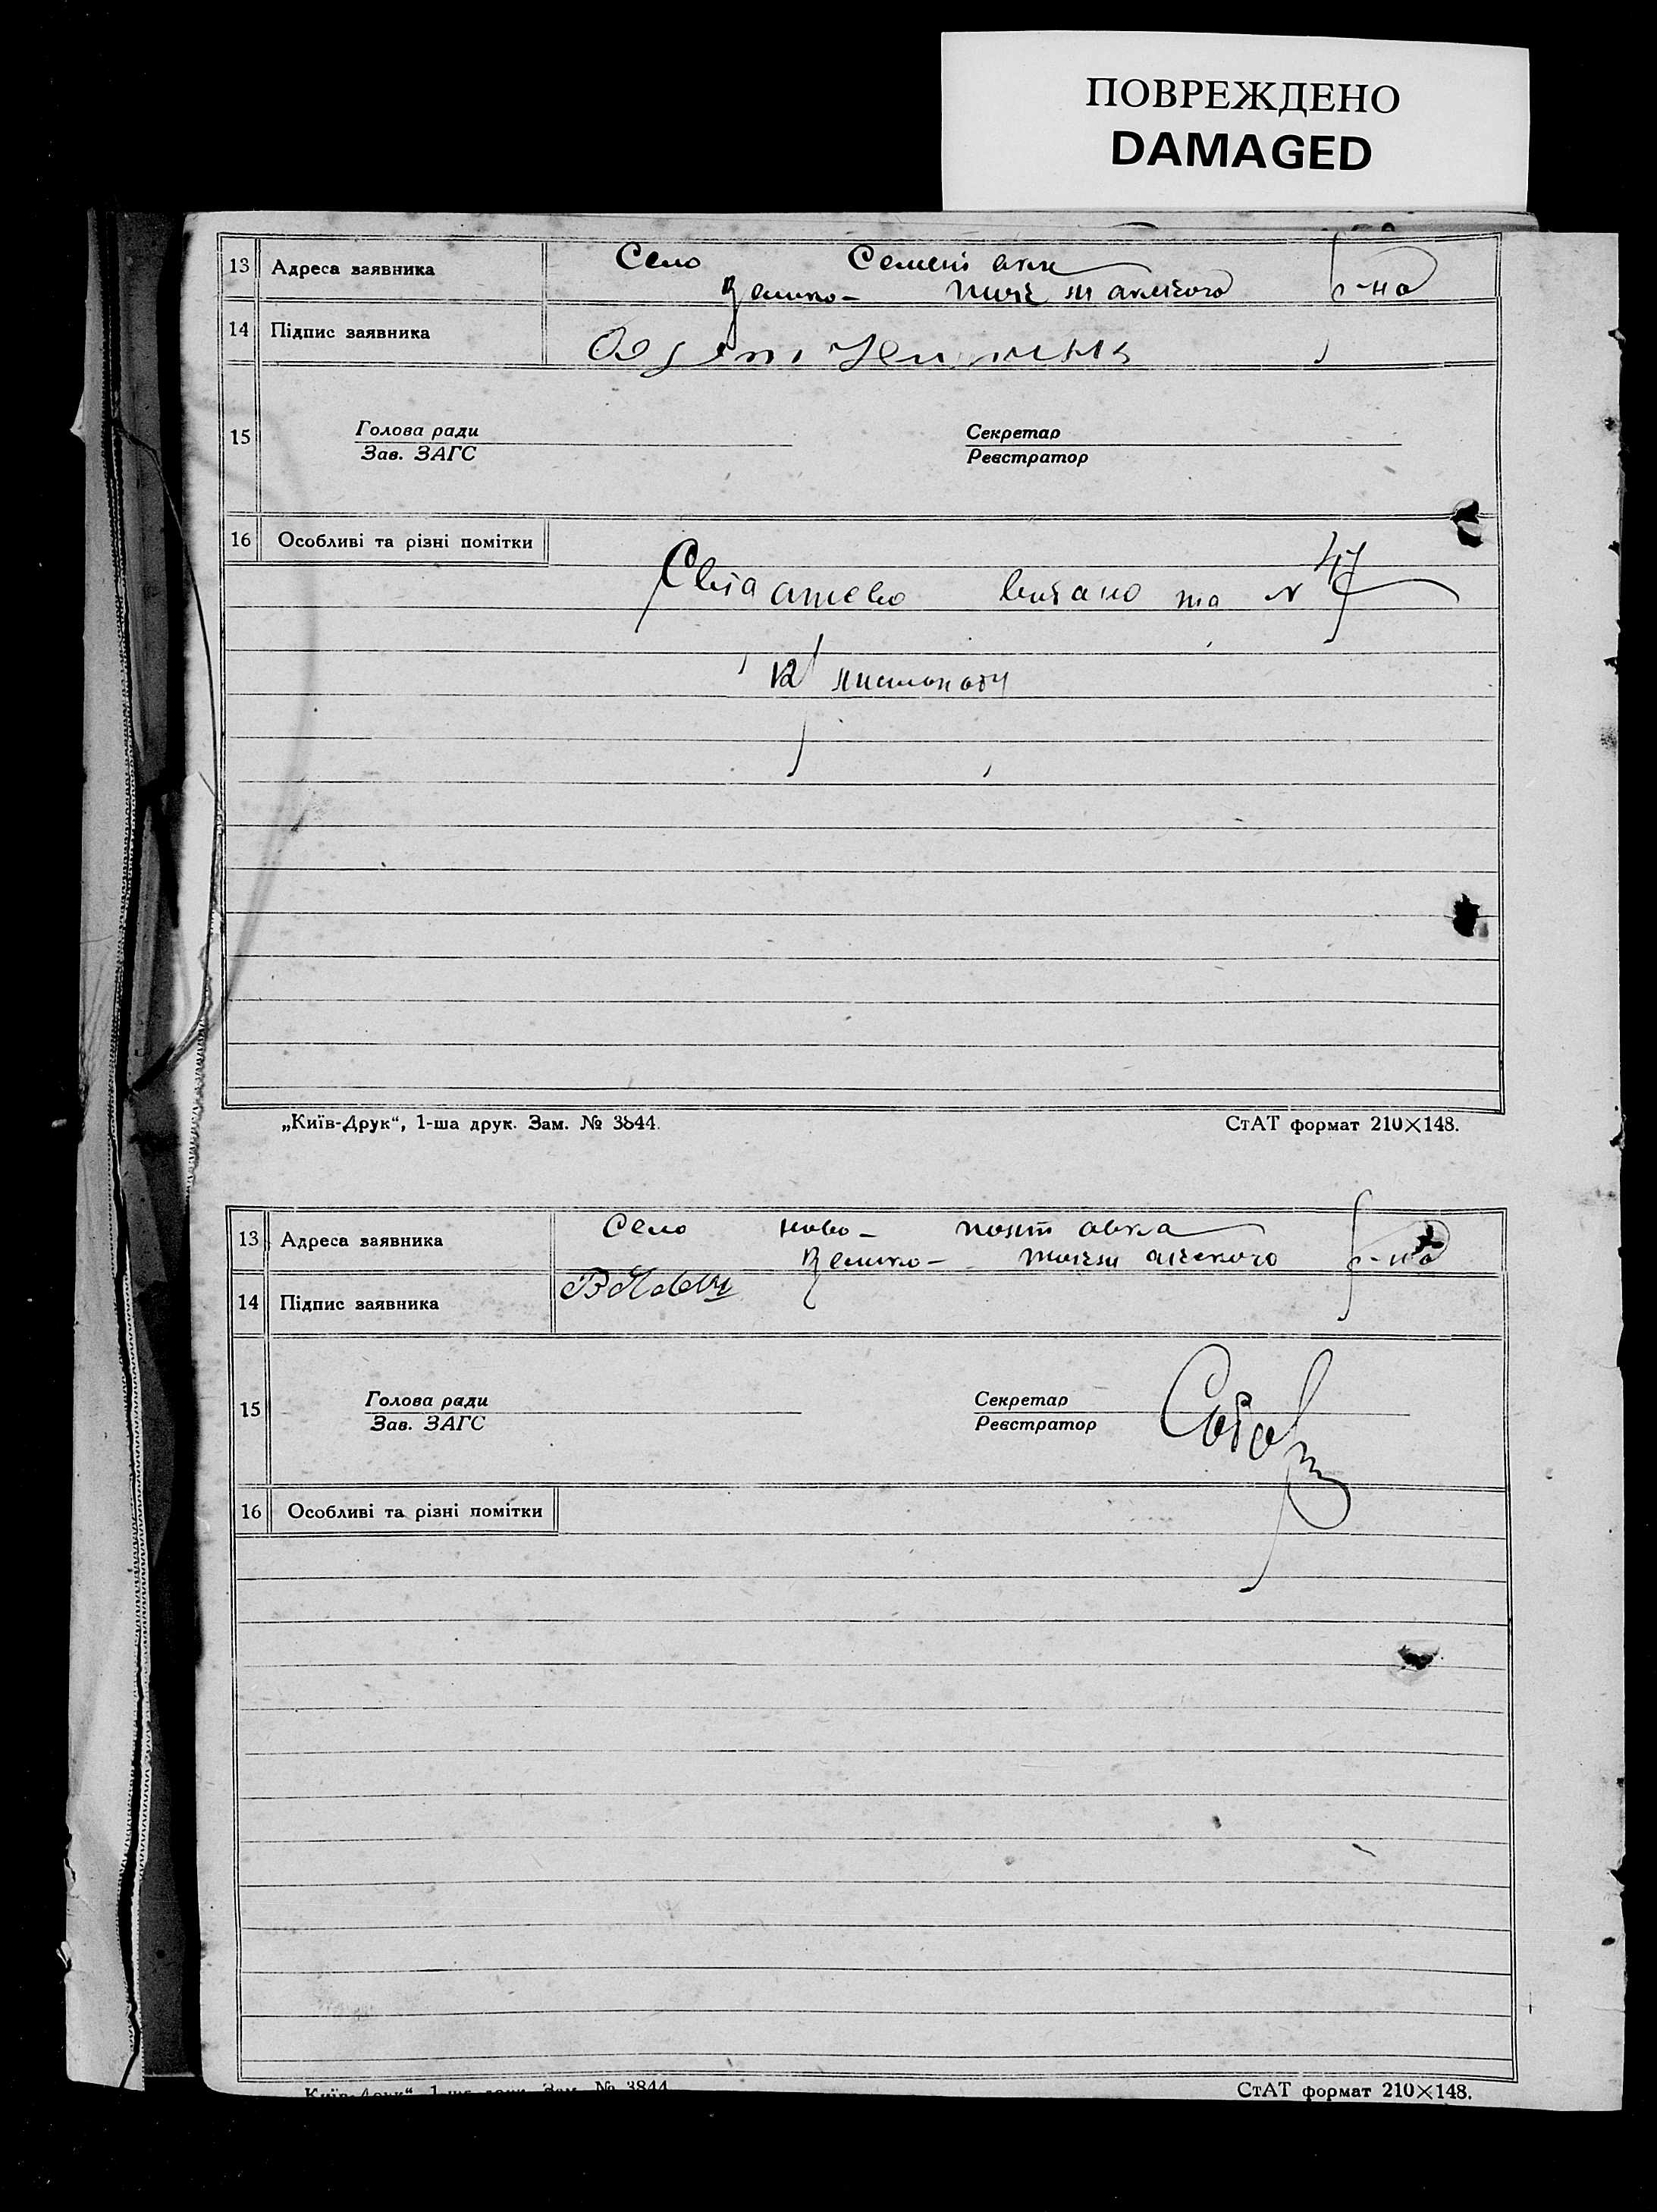 ПОВРЕЖДЕНО
DAMAGED
13 Адреса заявника Село
р-на
14 Підпис заявника
15 Голова ради Секретар
Зав. ЗАГС Реєстратор
16 Особливі та різні помітки
видано на N 47
12 листопаду
„Київ-Друк“, 1-ша друк. Зам. № 3844. СтАТ формат 210×148.
13 Адреса заявника Село ново-
Велико- р-на
14 Підпис заявника
15 Голова ради Секретар
Зав. ЗАГС Реєстратор
16 Особливі та різні помітки
Київ-Друк“, 1-ша друк. Зам. № 3844 СтАТ формат 210×148.